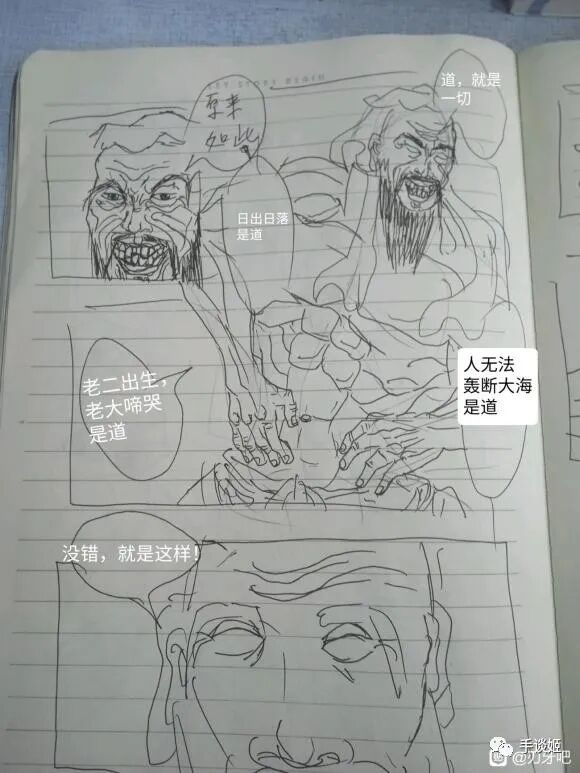 原来
如此
道，就是
一切
日出日落
是道
老二出生，
老大啼哭
是道
人无法
轰断大海
是道
没错，就是这样！
手谈姬
@刃牙吧